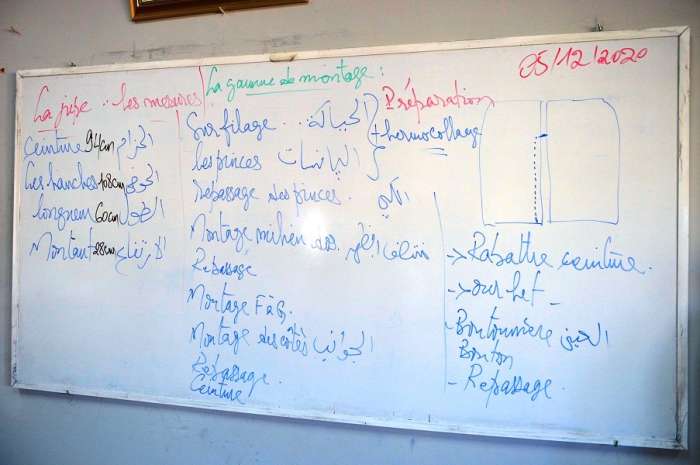 05/12/2020
La jupe : les mesures
Ceinture 94cm الحزام
les hanches 108cm الحوض
longueur 60cm الطول
Montant 28cm الارتفاع
La gamme de montage :
Surfilage .. الحباكة
les pinces البانسات
Repassage des pinces. الكي
Montage milieu
Repassage
Montage
Montage des côtés الجوانب
Repassage.
Ceinture
Préparation
+ thermocollage
-> Rabattre ceinture.
-> ourlet -
- Boutonnière
Bouton
- Repassage.